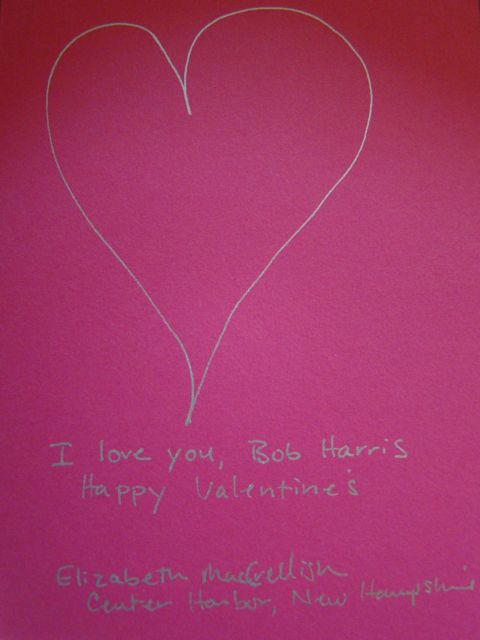 I love you, Bob Harris
Happy Valentine's
Elizabeth MacCrellish
Center Harbor, New Hampshire